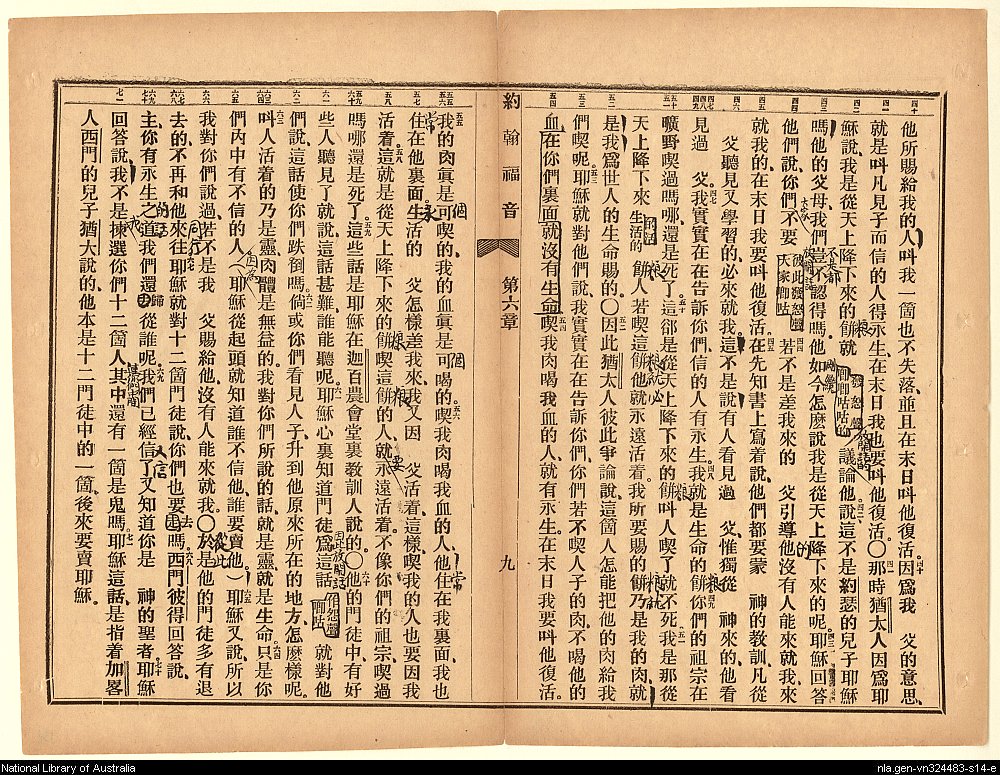 他所賜給我的人呌我一箇也不失落、並且在末日呌他復活。因爲我 父的意思、
就是呌凡見子而信的人得永生、在末日我也要呌他復活○那時猶太人因爲耶
穌說我是從天上降下來的餅就議論他、說這不是約瑟的兒子耶穌
嗎、他的父母我們豈不認得嗎、他如今怎麼說我是從天上降下來的呢。耶穌回答
他們說、你們不要 若不是差我來的 父引導他、沒有人能來就我、來
就我的、在末日我要呌他復活。在先知書上寫着說、他們都要蒙 神的敎訓、凡從
父聽見又學習的、必來就我。這不是說有人看見過 父、惟獨從 神來的、他看
見過 父。我實實在在告訴你們、信的人有永生。我就是生命的餅。你們的祖宗在
曠野喫過嗎哪、還是死了。這卻是從天上降下來的餅、呌人喫了就不死。我是那從
天上降下來生活的餅、人若喫這餅、他就永遠活着、我所要賜的餅、乃是我的肉、就
是我爲世人的生命賜的○因此猶太人彼此爭論說、這箇人怎能把他的肉給我
們喫呢。耶穌就對他們說、我實實在在告訴你們、你們若不喫人子的肉、不喝他的
血、在你們裏面就沒有生命。喫我肉喝我血的人、就有永生、在末日我要呌他復活。
約翰福音 第六章 九
我的肉眞是可喫的、我的血眞是可喝的。喫我肉喝我血的人、他住在我裏面、我也
住在他裏面。生活的 父怎樣差我來、我又因 父活着、這樣喫我的人也要因我
活着。這就是從天上降下來的餅、喫這餅的人、就永遠活着、不像你們的祖宗喫過
嗎哪還是死了。這些話是耶穌在迦百農會堂裏敎訓人說的○他的門徒中有好
些人聽見了、就說這話甚難、誰能聽呢。耶穌心裏知道門徒爲這話 就對他
們說、這話使你們跌倒嗎。倘或你們看見人子升到他原來所在的地方怎麼樣呢。
呌人活着的乃是靈、肉體是無益的、我對你們所說的話、就是靈、就是生命。只是你
們內中有不信的人、（耶穌從起頭就知道誰不信他、誰要賣他）耶穌又說、所以
我對你們說過、若不是我 父賜給他、沒有人能來就我○於是他的門徒多有退
去的、不再和他來往。耶穌就對十二箇門徒說、你們也要去嗎。西門彼得回答說、
主、你有永生之道、我們還從誰呢。我們已經信了、又知道你是 神的聖者。耶穌
回答說、我不是揀選你們十二箇人、其中還有一箇是鬼嗎。耶穌這話是指着加畧
人西門的兒子猶大說的、他本是十二門徒中的一箇、後來要賣耶穌。
National Library of Australia
nla.gen-vn324483-s14-e